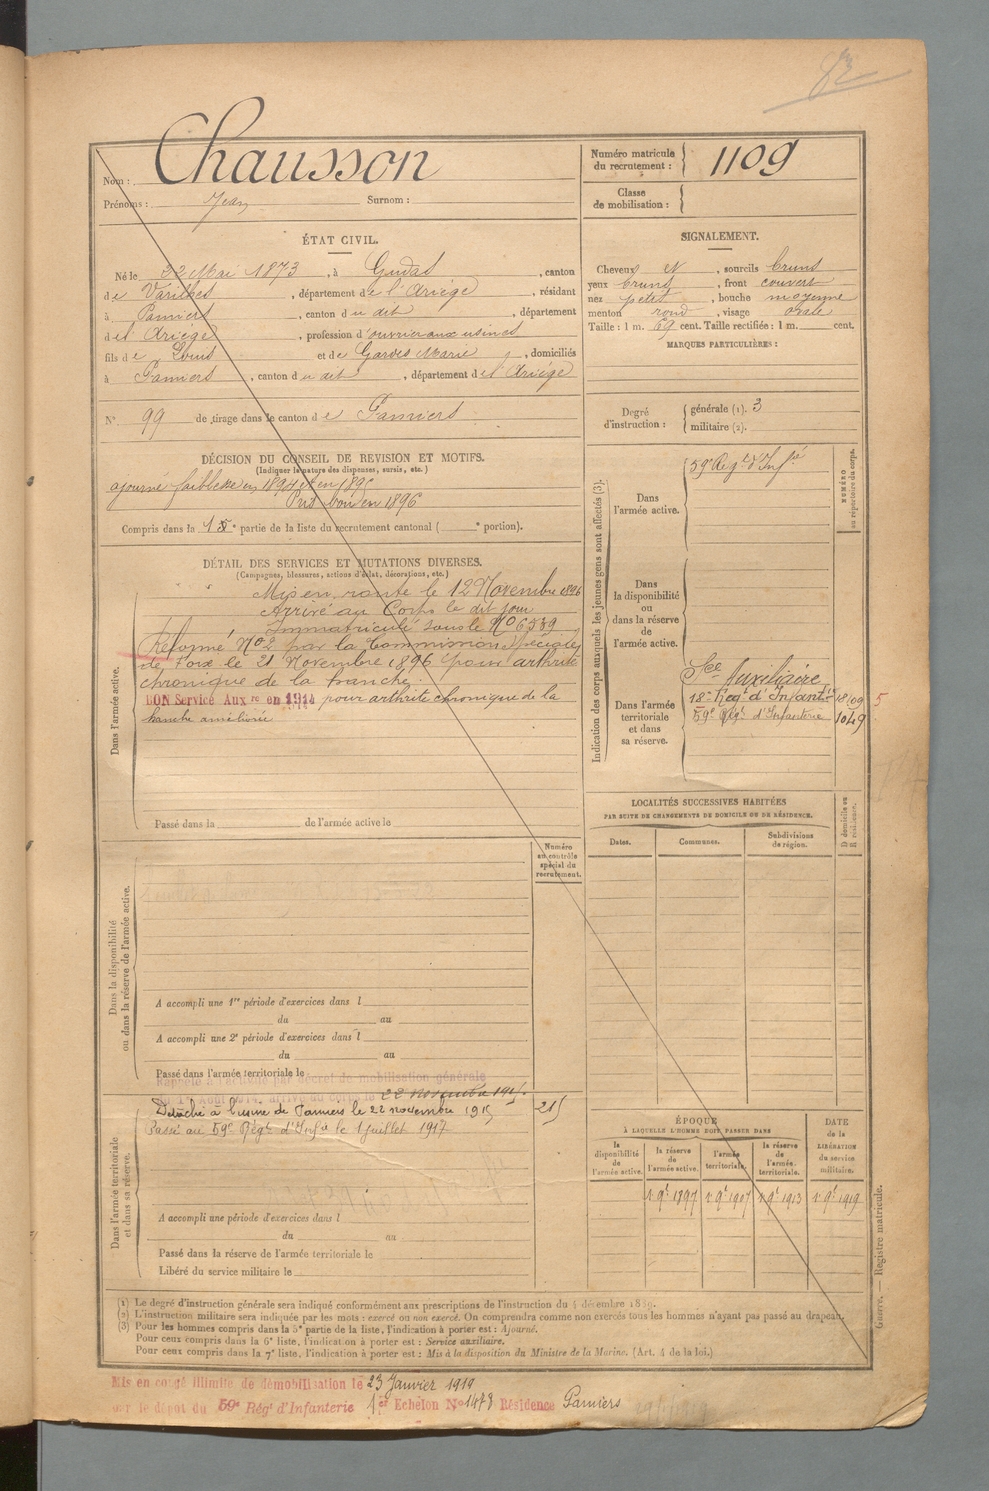 Chausson
Nom :
Prénoms : Jean Surnom :
Numéro matricule du recrutement : 1109
Classe de mobilisation :
ÉTAT CIVIL.
Né le 22 Mai 1873, à Gudas, canton
de Varilhes, département de l'Ariège, résidant
à Pamiers, canton du dit, département
de l'Ariège, profession d'ouvrier aux usines
fils de Louis et de Gardes Marie, domiciliés
à Pamiers, canton du dit, département de l'Ariège
N° 99 de tirage dans le canton de Pamiers
SIGNALEMENT.
Cheveux et, sourcils bruns
yeux bruns, front couvert
nez petit, bouche moyenne
menton rond, visage ovale
Taille : 1 m. 69 cent. Taille rectifiée : 1 m. cent.
MARQUES PARTICULIÈRES :
Degré d'instruction : générale (1). 3
militaire (2).
DÉCISION DU CONSEIL DE REVISION ET MOTIFS.
(Indiquer la nature des dispenses, sursis, etc.)
ajourné faiblesse en 1894 et en 1895
Pris bon en 1896
Compris dans la 1 5e partie de la liste du recrutement cantonal ( e portion).
DÉTAIL DES SERVICES ET MUTATIONS DIVERSES.
(Campagnes, blessures, actions d'éclat, décorations, etc.)
Dans l'armée active.
Mis en route le 12 Novembre 1896
Arrivé au Corps le dit jour
Immatriculé sous le No 6539
Réformé No 2 par la Commission Spéciale
de Foix le 21 Novembre 1896 pour arthrite
chronique de la hanche.
BON Service Auxre en 1914 pour arthrite chronique de la
hanche améliorée
Passé dans la de l'armée active le
Indication des corps auxquels les jeunes gens sont affectés (3).
NUMÉRO au répertoire du corps.
Dans l'armée active.
59e Regt d'Infie
Dans la disponibilité ou dans la réserve de l'armée active.
Dans l'armée territoriale et dans sa réserve.
Sce Auxiliaire
18e Regt d'Infantie 18109 5
59e Régt d'Infanterie 1049
LOCALITÉS SUCCESSIVES HABITÉES
PAR SUITE DE CHANGEMENTS DE DOMICILE OU DE RÉSIDENCE.
D domicile ou R résidence.
Dates. Communes. Subdivisions de région.
Numéro au contrôle spécial du recrutement.
Dans la disponibilité ou dans la réserve de l'armée active.
A accompli une 1re période d'exercices dans l
du au
A accompli une 2e période d'exercices dans l
du au
Passé dans l'armée territoriale le
Rappelé à l'activité par décret de mobilisation générale
du 1er Août 1914, arrivé au corps le 22 novembre 1915.
Détaché à l'usine de Pamiers le 22 novembre 1915 215
Passé au 59e Régt d'Infie le 1 juillet 1917
Dans l'armée territoriale et dans sa réserve.
A accompli une période d'exercices dans l
du au
Passé dans la réserve de l'armée territoriale le
Libéré du service militaire le
ÉPOQUE
À LAQUELLE L'HOMME DOIT PASSER DANS
DATE de la LIBÉRATION du service militaire.
la disponibilité de l'armée active. la réserve de l'armée active. l'armée territoriale. la réserve de l'armée territoriale.
1r 9e 1897 1r 9e 1907 1r 9e 1913 1r 9e 1919
(1) Le degré d'instruction générale sera indiqué conformément aux prescriptions de l'instruction du 4 décembre 1889.
(2) L'instruction militaire sera indiquée par les mots : exercé ou non exercé. On comprendra comme non exercés tous les hommes n'ayant pas passé au drapeau.
(3) Pour les hommes compris dans la 5e partie de la liste, l'indication à porter est : Ajourné.
Pour ceux compris dans la 6e liste, l'indication à porter est : Service auxiliaire.
Pour ceux compris dans la 7e liste, l'indication à porter est : Mis à la disposition du Ministre de la Marine. (Art. 4 de la loi.)
Guerre. — Registre matricule.
Mis en congé illimité de démobilisation le 23 Janvier 1919
par le dépôt du 59e Régt d'Infanterie 1er Echelon No 1478 Résidence Pamiers